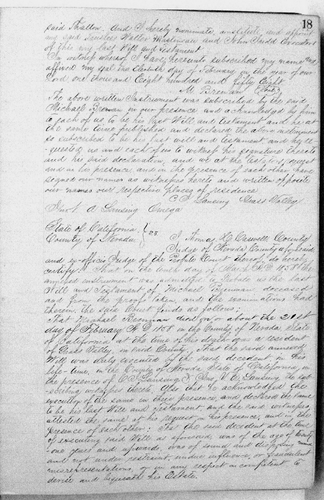 18
said Shallon, And I hereby nominate, constitute and appoint
my said brothers Walter Brennan and John Executors
of this my last Will and Testament.
In witness whereof I have hereunto subscribed my name and
affixed my seal this day of February in the year of our
Lord one thousand eight hundred and fifty eight
M. Brennan Seal
The above written Instrument was subscribed by the said
Michael Brennan in our presence and acknowledged by him
to each of us to be his last Will and testament and he at
the same time published and declared the above instrument
so subscribed to be his last will and testament and we
and each of us to witness his signature thereto
and his said declaration, and we at the testators request
and in his presence, and in the presence of each other have
signed our names as witnesses hereto and written opposite
our names our respective places of residence.
C. S. Lansing Grass Valley
A Lansing
State of California
County of Nevada ss
I, Thomas H. Caswell County
Judge of Nevada County aforesaid
and ex-officio Judge of the Probate Court thereof, do hereby
certify: That on the tenth day of March A.D. 1858 the
annexed instrument was admitted to Probate as the Last
Will and Testament of Michael Brennan deceased
and from the proof taken, and the examinations had
therein the said Court finds as follows:
That Michael Brennan died on or about the 21st
day of February A.D. 1858 in the County of Nevada State
of California at the time of his death was a resident
of Grass Valley, in said County; That the said annexed
Will was duly executed by the said decedent in his
life-time, in the County of Nevada, State of California in
the presence of C. S. Lansing & A. Lansing the
witnesses thereto. Also that he acknowledged the
execution of the same in their presence, and declared the same
to be his last Will and testament and the said witnesses
attested the same at his request in his presence, and in the
presence of each other; That the said decedent at the time
of executing said Will as aforesaid was of the age of twenty
one years and upwards, was of sound and disposing mind
and not under restraint undue influence, or fraudulent
misrepresentations, or in any respect incompetent to
devise and bequeath his Estate.